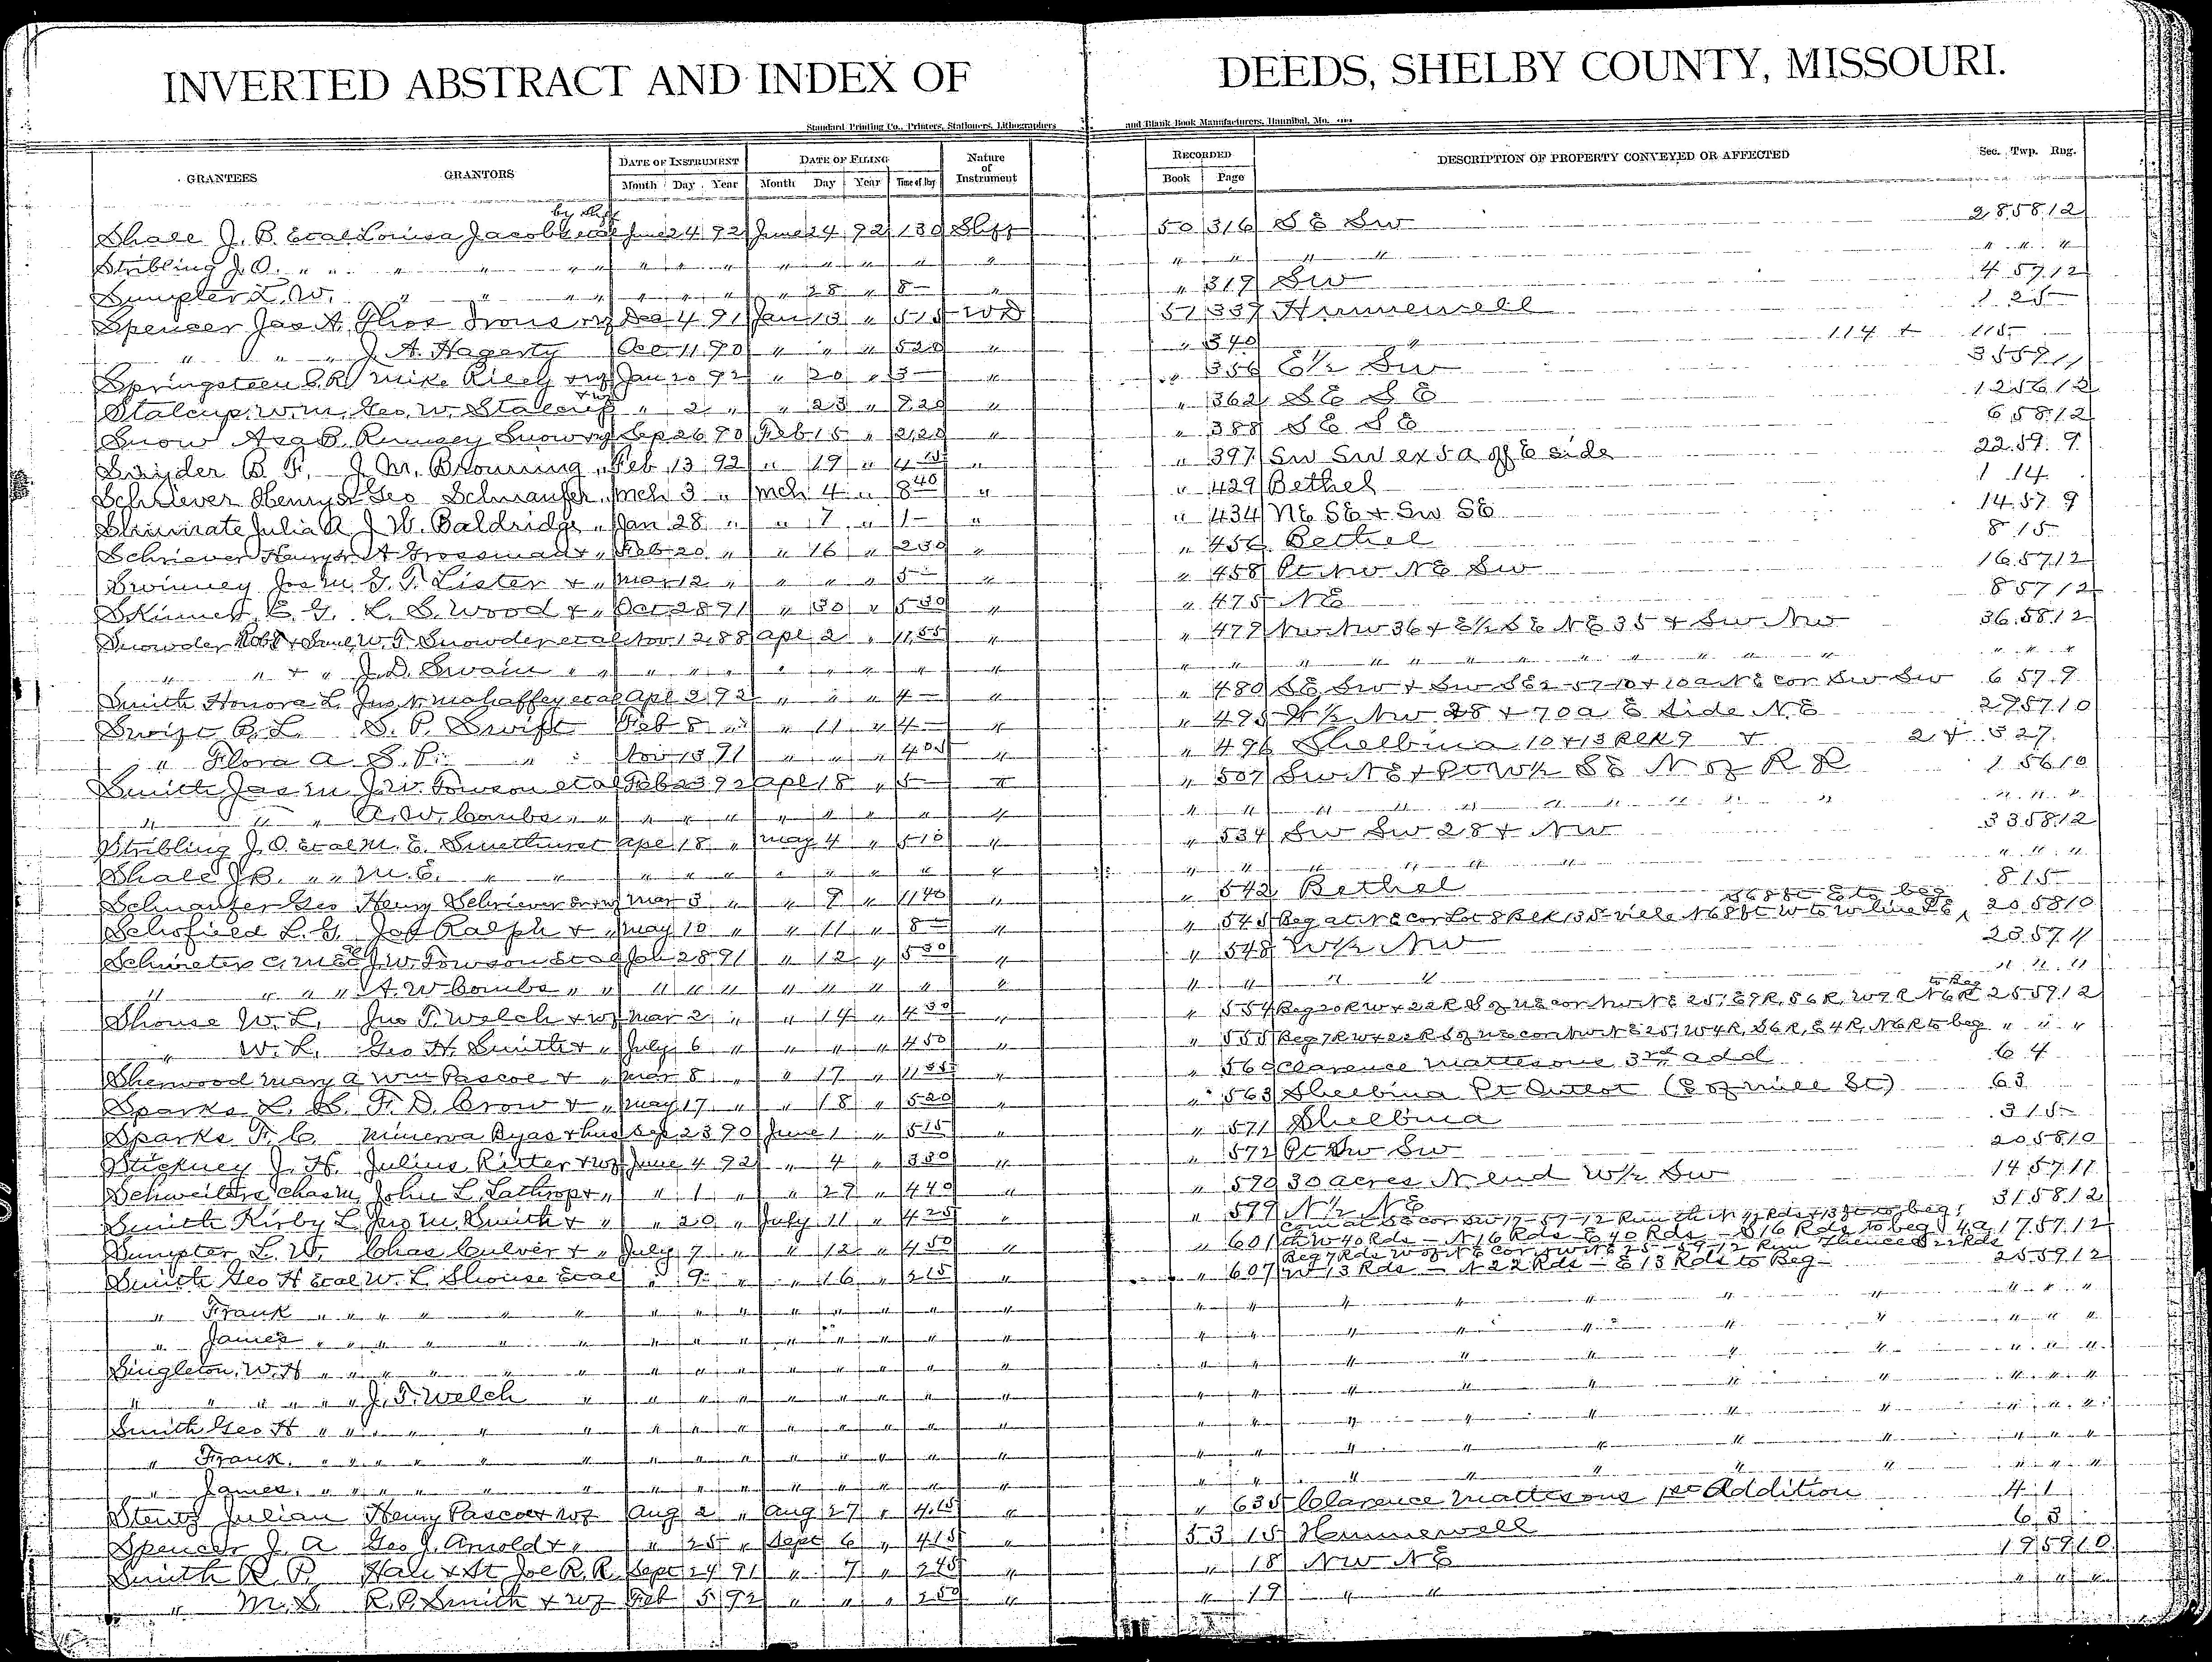 INVERTED ABSTRACT AND INDEX OF DEEDS, SHELBY COUNTY, MISSOURI.
Standard Printing Co., Printers, Stationers, Lithographers and Blank Book Manufacturers, Hannibal, Mo.
GRANTEES GRANTORS DATE OF INSTRUMENT DATE OF FILING Nature of Instrument RECORDED DESCRIPTION OF PROPERTY CONVEYED OR AFFECTED Sec. Twp. Rng.
Month Day Year Month Day Year Time of Day Book Page
by Shff
Shale J. B. Etal Louisa Jacobs etal June 24 92 June 24 92 130 Shff 50 316 S E SW 28 58 12
Stribling J. O. " " " " " " " " " " " " " " " " " " " " " "
Sumpter L. W. " " " " " " " " 28 " 8- " " 319 SW 4 57 12
Spencer Jas A. Thos Irons wf Dec 4 91 Jan 13 " 515 WD 51 339 Hunnewell 1 25
" " " J. A. Hagerty Oct 11 90 " " " 520 " " 340 " 114 + 115
Springsteen S. R. Mike Riely + wf Jan 20 92 " 20 " 3- " " 356 E½ SW 35 59 11
Stalcup W. M. Geo. W. Stalcup + wf " 2 " " 23 " 920 " " 362 S E S E 12 56 12
Snow Asa B. Rumsey Snow wf Sep 26 90 Feb 15 " 220 " " 388 S E S E 6 58 12
Snyder B. F. J. M. Browning " Feb 13 92 " 19 " 415 " " 397 SW SW ex 5 a off E side 22 59 9
Schriever Henry Sr Geo Schnaufer " Mch 3 " Mch 4 " 840 " " 429 Bethel 1 14
Julia A J. W. Baldridge " Jan 28 " " 7 " 1- " " 434 NE SE + SW SE 14 57 9
Schriever Henry Sr A Grossman + " Feb 20 " " 16 " 230 " " 456 Bethel 8 15
Swinney Jos M. G. T. Lister + " Mar 12 " " " " 5- " " 458 Pt NW NE SW 16 57 12
Skinner E. G. L. S. Wood + " Oct 28 91 " 30 " 530 " " 475 NE 8 57 12
Snowder Robt + Saml W. T. Snowder etal Nov 12 88 Apl 2 " 1155 " " 479 NW NW 36 + E½ SE NE 35 + SW NW 36 58 12
" " + " J. D. Swain " " " " " " " " " " " " " " " " " " " " " " "
Smith Honora L. Jno N. Mahaffey etal Apl 2 92 " " " 4- " " 480 SE SW + SW SE 2-57-10 + 10 a NE cor SW SW 6 57 9
Swift B. L. S. P. Swift Feb 8 " " 11 " 4- " " 495 W½ NW 28 + 70 a E side NE 29 57 10
" Flora A S. P. " " Nov 13 91 " " " 405 " " 496 Shelbina 10 + 13 Blk 9 + 2 + 3 27
Smith Jas M J. W. Towson etal Feb 23 92 Apl 18 " 5- " " 507 SW NE + Pt W½ SE N of R R 1 56 10
" " " A. W. Combs " " " " " " " " " " " " " " " " " " " " " "
Stribling J. O. etal M. E. Smethurst Apl 18 " May 4 " 510 " " 534 SW SW 28 + NW 33 58 12
Shale J B. " " M. E. " " " " " " " " " " " " " " " " " " "
Schnaufer Geo Henry Schriever Sr wf Mar 3 " " 9 " 1140 " " 542 Bethel 8 15
S 68 ft E to beg
Schofield L. G. Jos Ralph + " May 10 " " 11 " 8- " " 545 Beg at NE cor Lot 8 Blk 13 S-ville N 68 ft W to W line 20 58 10
J. W. Towson Etal 28 91 " 12 " 530 " " 548 W½ NW 23 57 11
" " " " A. W Combs " " " " " " " " " " " " " " " " "
to Beg
Shouse W. L. Jno T. Welch + wf Mar 2 " " 14 " 430 " " 554 Beg 20 R W + 22 R S of NE cor NW NE 25, E 9 R, S 6 R, W 9 R N 6 R 25 59 12
" W. L. Geo H. Smith + " July 6 " " " " 450 " " 555 Beg 7 R W + 22 R S of NE cor NW NE 25, W 4 R, S 6 R, E 4 R, N 6 R to beg " " "
Sherwood Mary A Wm Pascoe + " Mar 8 " " 17 " 1155 " " 560 Clarence Mattesons 3rd add 6 4
Sparks L. H. F. D. Crow + " May 17 " " 18 " 520 " " 563 Shelbina Pt Outlot (S of Mill St) 63
Sparks F. C. Minerva Byas + hus Sep 23 90 June 1 " 515 " " 571 Shelbina 3 15
Stickney J. H. Julius Ritter + wf June 4 92 " 4 " 330 " " 572 Pt SW SW 20 58 10
Schweitere Chas M. John L. Lathrop + " " 1 " " 29 " 440 " " 590 30 acres N end W½ SW 14 57 11
Smith Kirby L. Jno M. Smith + " " 20 " July 11 " 425 " " 599 N½ NE 31 58 12
Com at SE cor SW 17-57-12 Run th N 42 Rds + 13 ft to beg;
Sumpter L. W. Chas Culver + " July 7 " " 12 " 450 " " 601 th W 40 Rds - N 16 Rds - E 40 Rds - S 16 Rds to beg 4 a 17 57 12
Beg 7 Rds W of NE cor NW NE 25-59-12 Run Thence S 22 Rds
Smith Geo H Etal W. L. Shouse Etal " 9 " " 16 " 215 " " 607 W 13 Rds - N 22 Rds - E 13 Rds to Beg- 25 59 12
" Frank " " " " " " " " " " " " " " " " " " " " " " " "
" James " " " " " " " " " " " " " " " " " " " " " " " "
Singleton, W. H " " " " " " " " " " " " " " " " " " " " " " " "
" " " " " J. T. Welch " " " " " " " " " " " " " " " " " " "
Smith Geo H " " " " " " " " " " " " " " " " " " " " " " " "
" Frank " " " " " " " " " " " " " " " " " " " " " " " "
" James, " " " " " " " " " " " " " " " " " " " " " " " "
Stentz Julian Henry Pascoe + wf Aug 2 " Aug 27 " 4.15 " " 635 Clarence Mattesons 1st Addition 4 1
Spencer J. A Geo J. Arnold + " " 25 " Sept 6 " 415 " 53 15 Hunnewell 6 3
Smith R. P. Hal + St Joe R. R. Sept 24 91 " 7 " 245 " " 18 NW NE 19 59 10
" M. S. R. P. Smith + wf Feb 5 92 " " " 250 " " 19 " " " " "